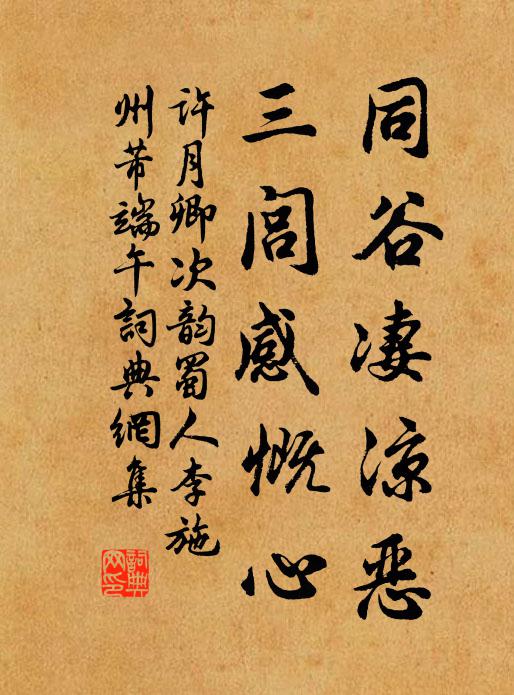 同谷凄凉恶
三闾感慨心
许月卿次韵蜀人李施
州芾端午詞典網集
詞典
网印